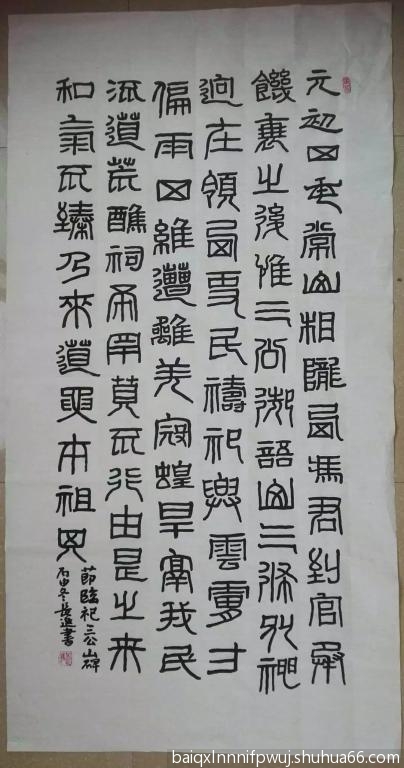 元初四年常山相隴西馮君到官承
饑衰之後惟三公御語山三條別神
迥在領西吏民禱祀興雲膚寸
偏雨四維遭離羌寇蝗旱鬲我民
流道荒醮祠希罕奠不行由是之來
和氣不臻乃來道要本祖其
節臨祀三公山碑
冬長進書
baiqxlnnnifpwuj.shuhua66.com